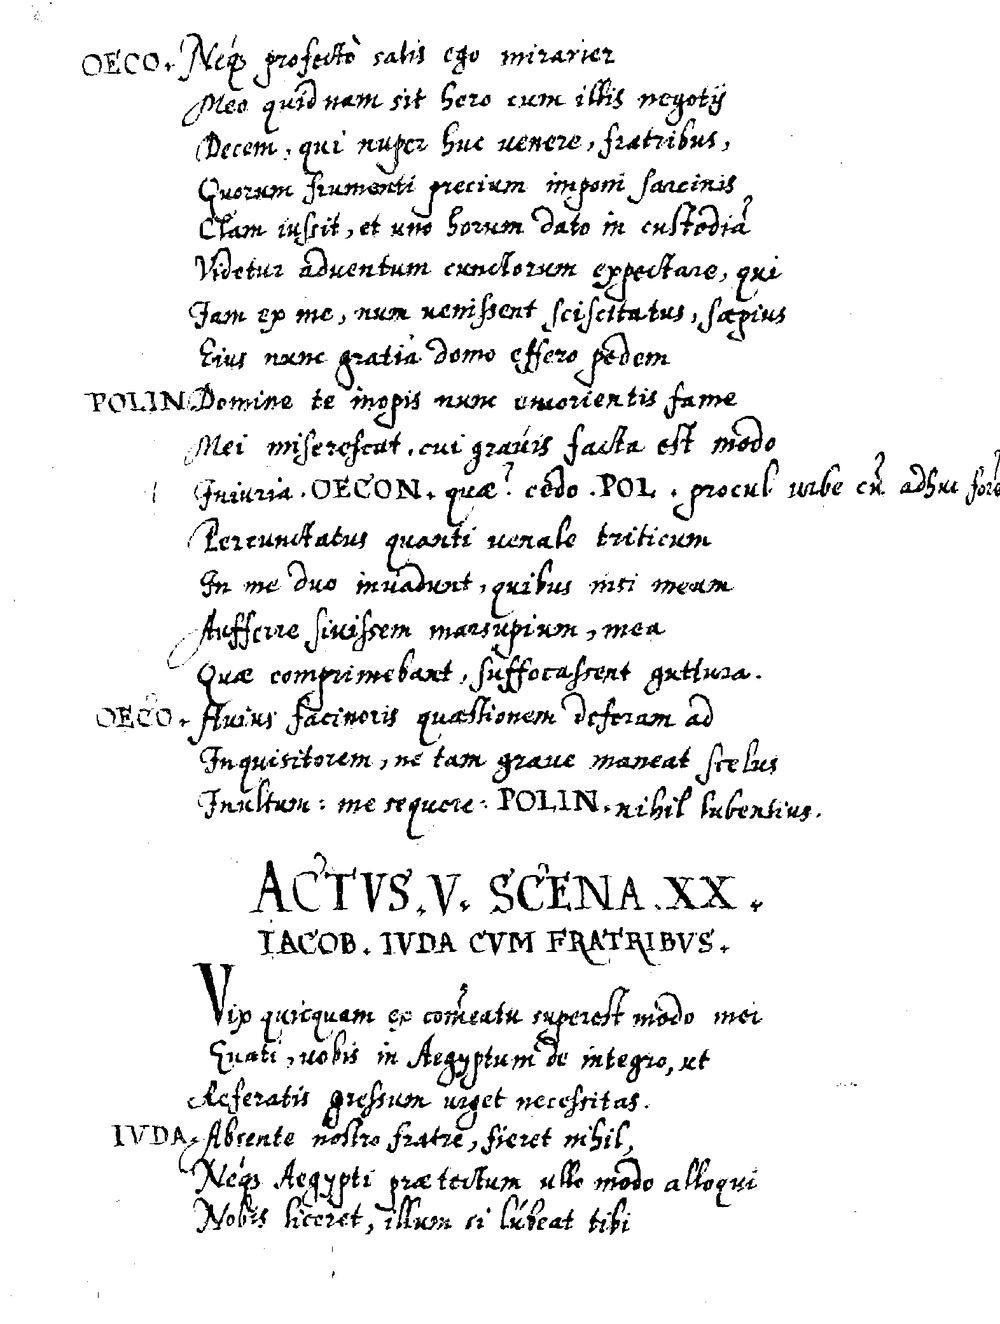 OECO. Neq́3 profectò satis ego mirarier
Meo quid nam sit hero cum illis negotij
Decem, qui nuper huc uenere, fratribus,
Quorum frumenti precium imponi sarcinis
Clam iussit, et uno horum dato in custodiã
Videtur aduentum cunctorum expectare, qui
Iam ex me, num uenissent sciscitatus, sæpius
Eius nunc gratia domo effero pedem
POLIN. Domine te inopis nunc emorientis fame
Mei miserescat, cui grauis facta est modo
Iniuria. OECON. quæ? cedo. POL. procul urbe cũ adhuc forẽ
Percunctatus quanti uenale triticum
In me duo inuadunt, quibus nisi meam
Aufferre siuissem marsupium, mea
Quæ comprimebant, suffocassent guttura.
OECO. Huius facinoris quæstionem deferam ad
Inquisitorem, ne tam graue maneat scelus
Inultum: me sequere: POLIN. nihil lubentius.
ACTVS. V. SCENA. XX.
IACOB. IVDA CVM FRATRIBVS.
Vix quicquam ex comeatu superest modo mei
Gnati, uobis in Aegyptum de integro, ut
Referatis gressum urget necessitas.
IVDA. Absente nostro fratre, fieret nihil,
Neq́3 Aegypti præfectum ullo modo alloqui
Nobis liceret, illum si lubeat tibi